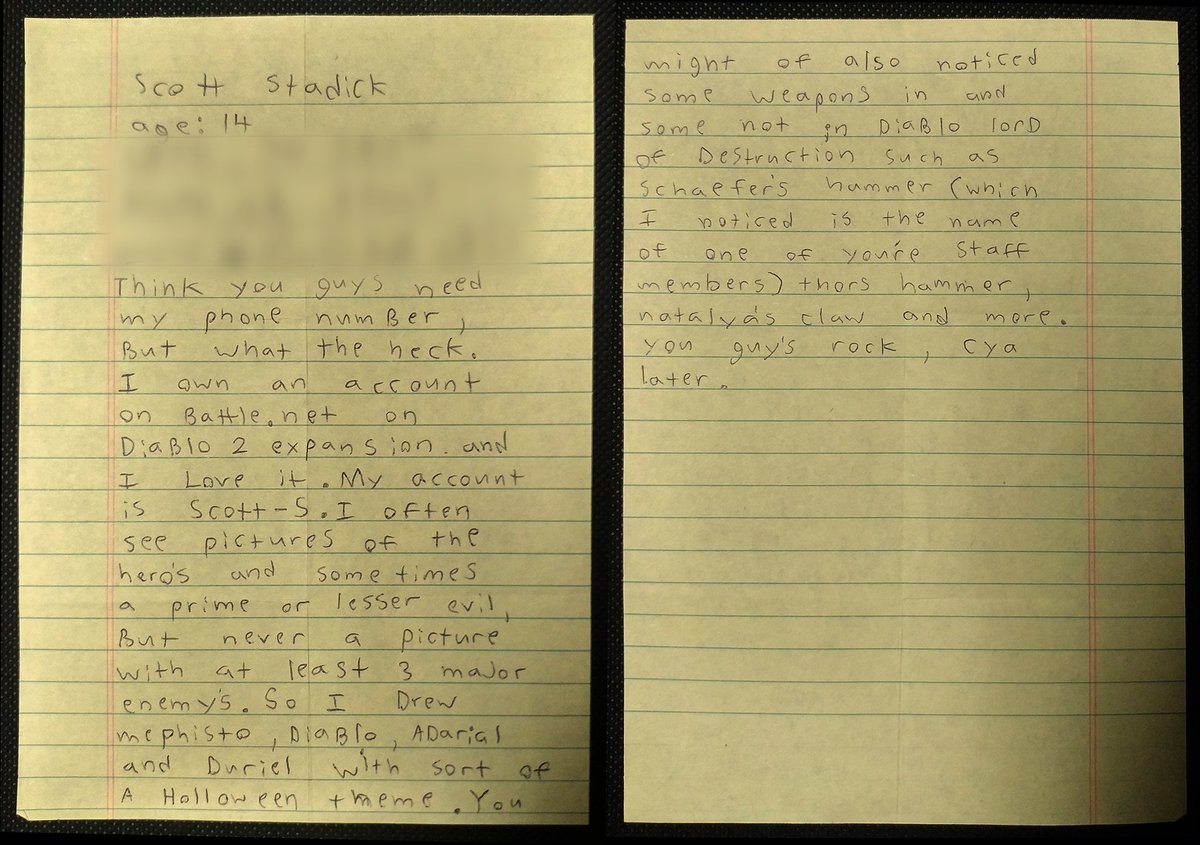 Scott Stadick
age: 14
Think you guys need
my phone numBer,
But what the heck.
I own an account
on Battle.net on
DiaBlo 2 expansion. and
I Love it. My account
is Scott-S. I often
see pictures of the
hero's and some times
a prime or lesser evil,
But never a picture
with at least 3 major
enemy's. So I Drew
mephisto, DiaBlo, ADarial
and Duriel with sort of
A Holloween theme. You
might of also noticed
some weapons in and
some not in DiaBlo lorD
of Destruction such as
schaefer's hammer (which
I noticed is the name
of one of you're Staff
members) thors hammer,
natalya's claw and more.
you guy's rock, cya
later.